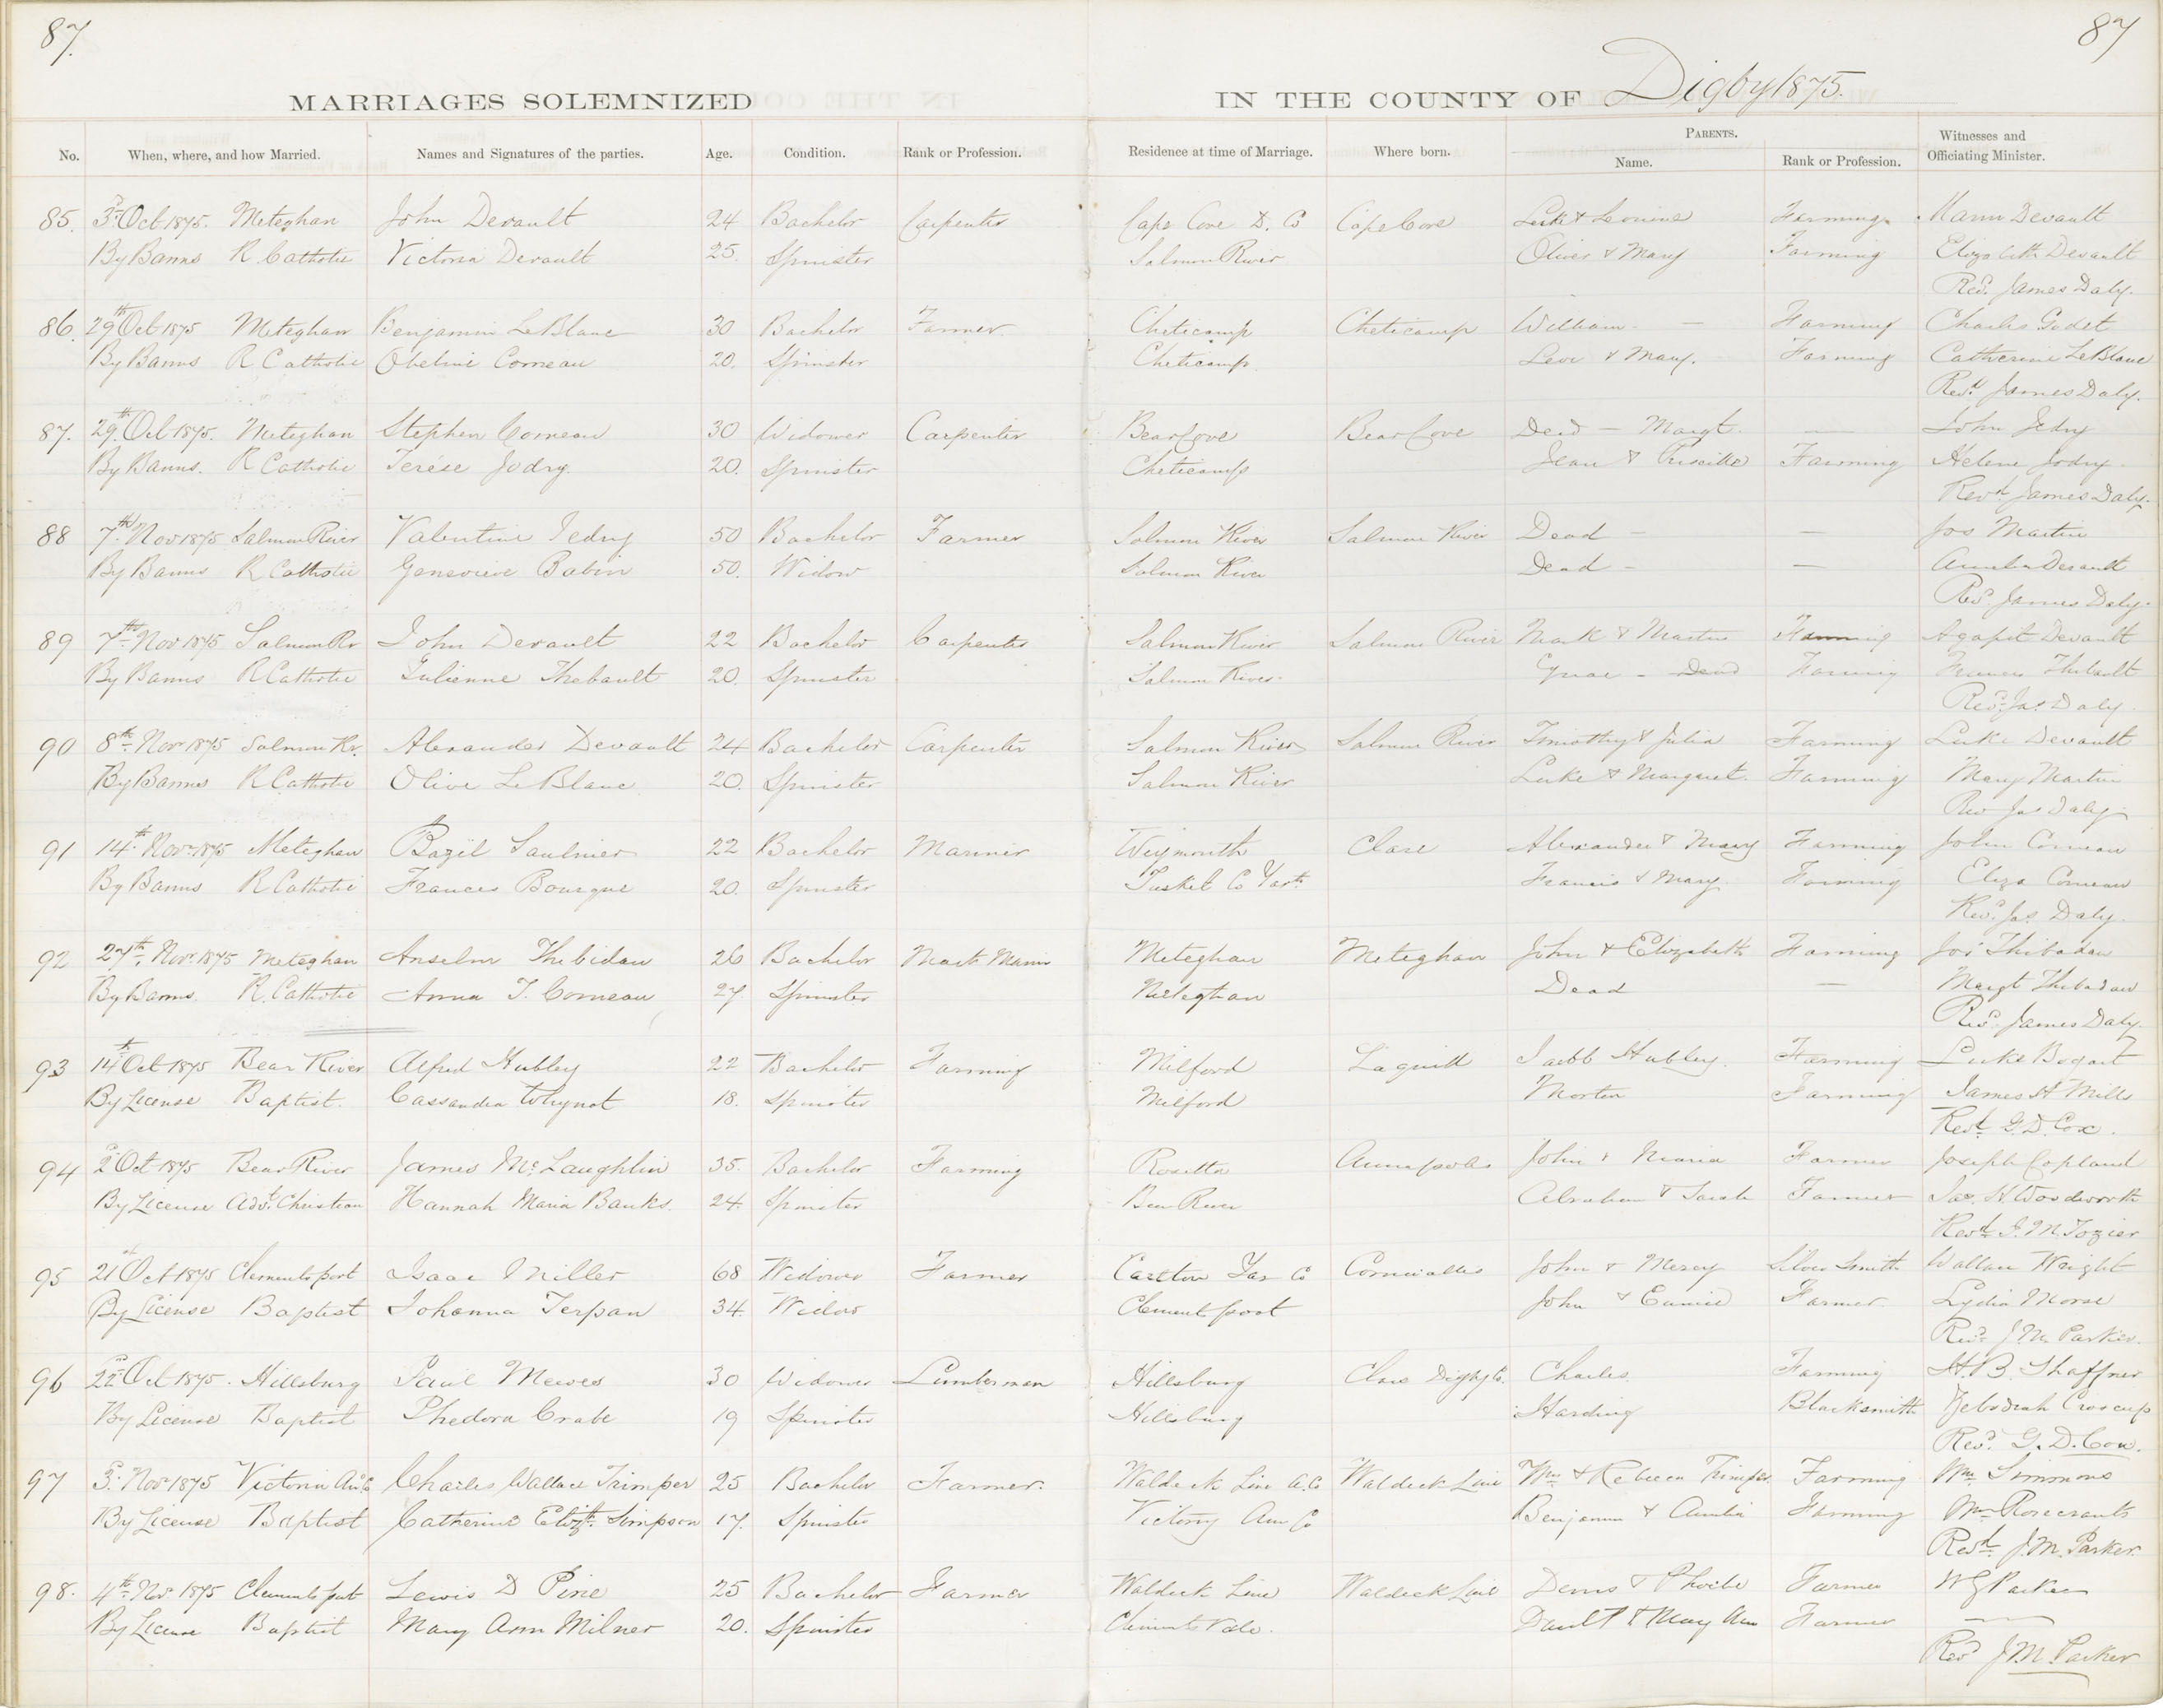 87. 87
MARRIAGES SOLEMNIZED IN THE COUNTY OF Digby 1875.
No. When, where, and how Married. Names and Signatures of the parties. Age. Condition. Rank or Profession. Residence at time of Marriage. Where born. PARENTS. Name. Rank or Profession. Witnesses and Officiating Minister.
85. 3d Oct 1875. Meteghan John Devault 24 Bachelor Carpenter Cape Cove D. Co Cape Cove Luke & Louise Farming Mann Devault
By Banns R. Catholic Victoria Devault 25. Spinster Salmon River Oliver & Mary Farming Elizabeth Devault
Revd. James Daly.
86. 29th Oct 1875 Meteghan Benjamin LeBlanc 30 Bachelor Farmer Cheticamp Cheticamp William - — Farming Charles Godet
By Banns R Catholic Obeline Comeau 20. Spinster Cheticamp Levi & Mary. Farming Catherine LeBlanc
Revd. James Daly.
87. 29th Oct 1875. Meteghan Stephen Comeau 30 Widower Carpenter Bear Cove Bear Cove Dead — Margt. — John Jedry
By Banns. R Catholic Terése Jodry 20. Spinster Cheticamp Jean & Priscilla Farming Helene Jodry
Revd. James Daly.
88 7th Nov 1875 Salmon River Valentine Jedry 50 Bachelor Farmer Salmon River Salmon River Dead — — Jos Martin
By Banns R Catholic Genevieve Babin 50. Widow Salmon River Dead — — Devault
Revd. James Daly.
89 7th Nov 1875 Salmon Rr John Devault 22 Bachelor Carpenter Salmon River Salmon River Mark & Martin Farming Agapit Devault
By Banns R Catholic Julienne Thebault 20. Spinster Salmon River. - Dead Farming Thibault
Revd. Jas Daly.
90 8th Nov 1875 Salmon Rr. Alexander Devault 24 Bachelor Carpenter Salmon River Salmon River Timothy & Julia Farming Luke Devault
By Banns R Catholic Olive LeBlanc 20. Spinster Salmon River Luke & Margaret. Farming Mary Martin
Rev Jas Daly
91 14th Nov. 1875 Meteghan Bazil Saulnier 22 Bachelor Mariner Weymouth Clare Alexander & Mary Farming John Comeau
By Banns R Catholic Frances Bourque 20. Spinster Tusket Co Yarth. Francis & Mary Farming Eliza Comeau
Revd. Jas Daly.
92 27th. Nov. 1875 Meteghan Anselm Thebidau 26 Bachelor Mast Marin Meteghan Meteghan John & Elizabeth Farming Jos Thibadau
By Banns. R. Catholic Anna T. Comeau 27. Spinster Meteghan Dead — Margt Thibadau
Revd. James Daly.
93 14th Oct 1875 Bear River Alfred Hubley 22 Bachelor Farming Milford Lequill Jacob Hubley. Farming Luke Bogart
By License Baptist. Cassandra Whynot 18. Spinster Milford Morton Farming James H Mills
Revd. G. D. Cox.
94 2d Oct 1875 Bear River James McLaughlin 35. Bachelor Farming Rosetta Annapolis John & Maria Farmer Joseph Copland
By License Advt. Christian Hannah Maria Banks. 24. Spinster Bear River Abraham & Sarah Farmer Jas. H Woodworth
Revd. J. M Tozier
95 21st Oct 1875 Clements port Isaac Miller 68 Widower Farmer Carlton Yar Co Cornwallis John & Mercy Silver Smith Wallace Wright
By License Baptist Johanna Terpan 34. Widow Clements port John & Eunice Farmer Lydia Morse
Revd. J. M. Parker.
96 22d Oct 1875. Hillsburg Paul Mewes 30 Widower Lumberman Hillsburg Clare Digby Co. Charles. Farming H. B. Shaffner
By License Baptist Phedora Crabe 19 Spinster Hillsburg Harding Blacksmith Zebodiah Croscup
Revd. G. D. Cox.
97 3d. Nov 1875 Victoria An Co Charles Wallace Trimper 25 Bachelor Farmer. Waldeck Line A. Co Waldeck Line Wm & Rebecca Trimper Farming Wm Simmons
By License Baptist Catherine Elizth. Simpson 17. Spinster Victory Ann Co Benjamin & Amelia Farming Mr Rosecrants
Revd. J. M. Parker.
98. 4th. Nov 1875 Clements port Lewis D Pine 25 Bachelor Farmer Waldeck Line Waldeck Line Denis & Phoebe Farmer W G Parker
By License Baptist Mary Ann Milner 20. Spinster Clements Vale. & Mary Ann Farmer —
Revd J. M. Parker